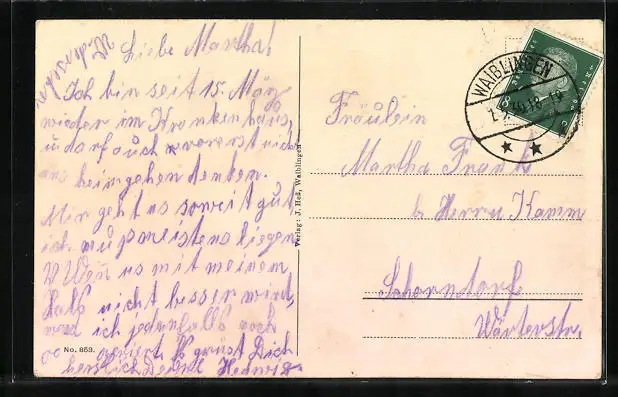 Liebe Martha!
Ich bin seit 15. März
wieder im Krankenhaus,
u. darf auch vorerst nicht
ans heimgehen denken.
Mir geht es soweit gut,
ich muß meistens liegen
Wen es mit meinem
Hals nicht besser wird,
werd ich jedenfalls noch
operiert. Es grüst Dich
herzlich Deine Hedwig
No. 853.
Verlag: J. Heß, Waiblingen
WAIBLINGEN
8
Fräulein
Martha Frank
b. Herrn Kamm
Schorndorf